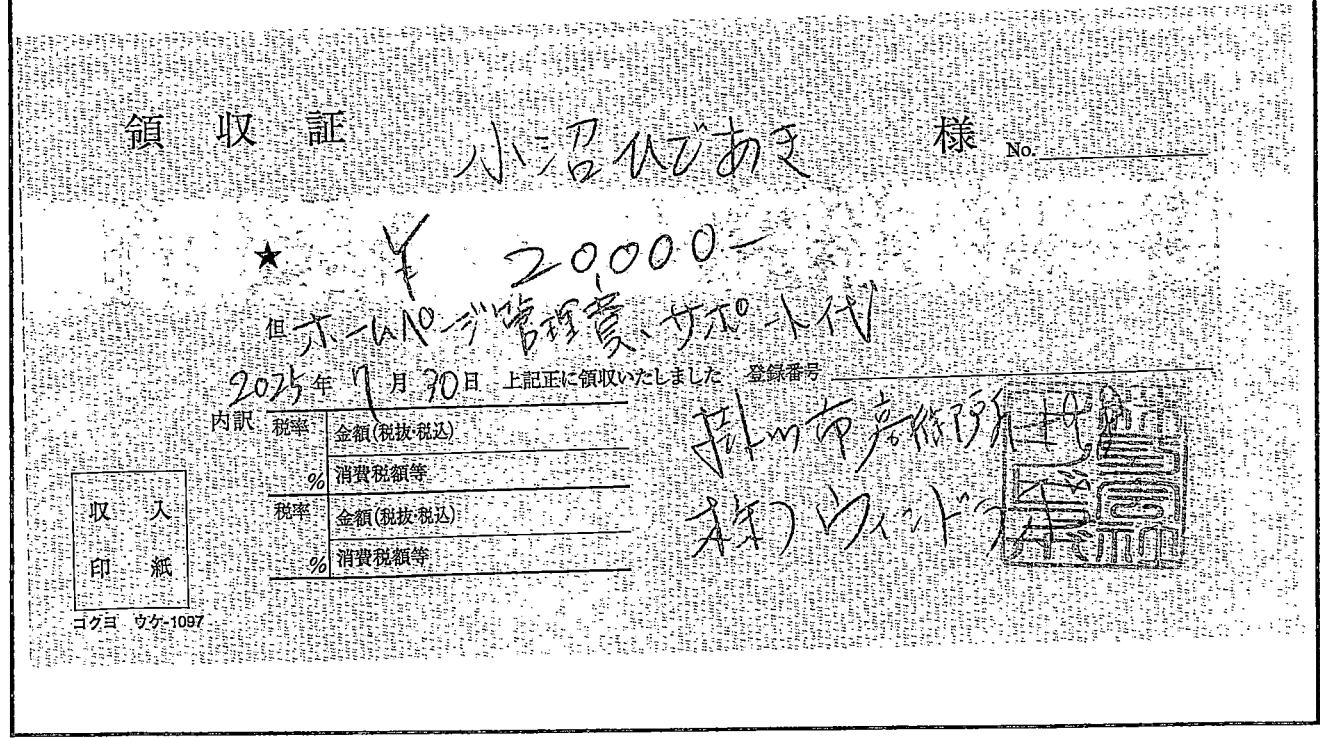 領収証 小沼ひであき 様 No.
★ ¥ 20,000-
但 ホームページ管理費、サポート代
2025年 7月 30日 上記正に領収いたしました 登録番号
内訳 税率 % 金額(税抜・税込)
消費税額等
税率 % 金額(税抜・税込)
消費税額等
掛川市
株)ウィンドラ
収入
印紙
コクヨ ウケ-1097